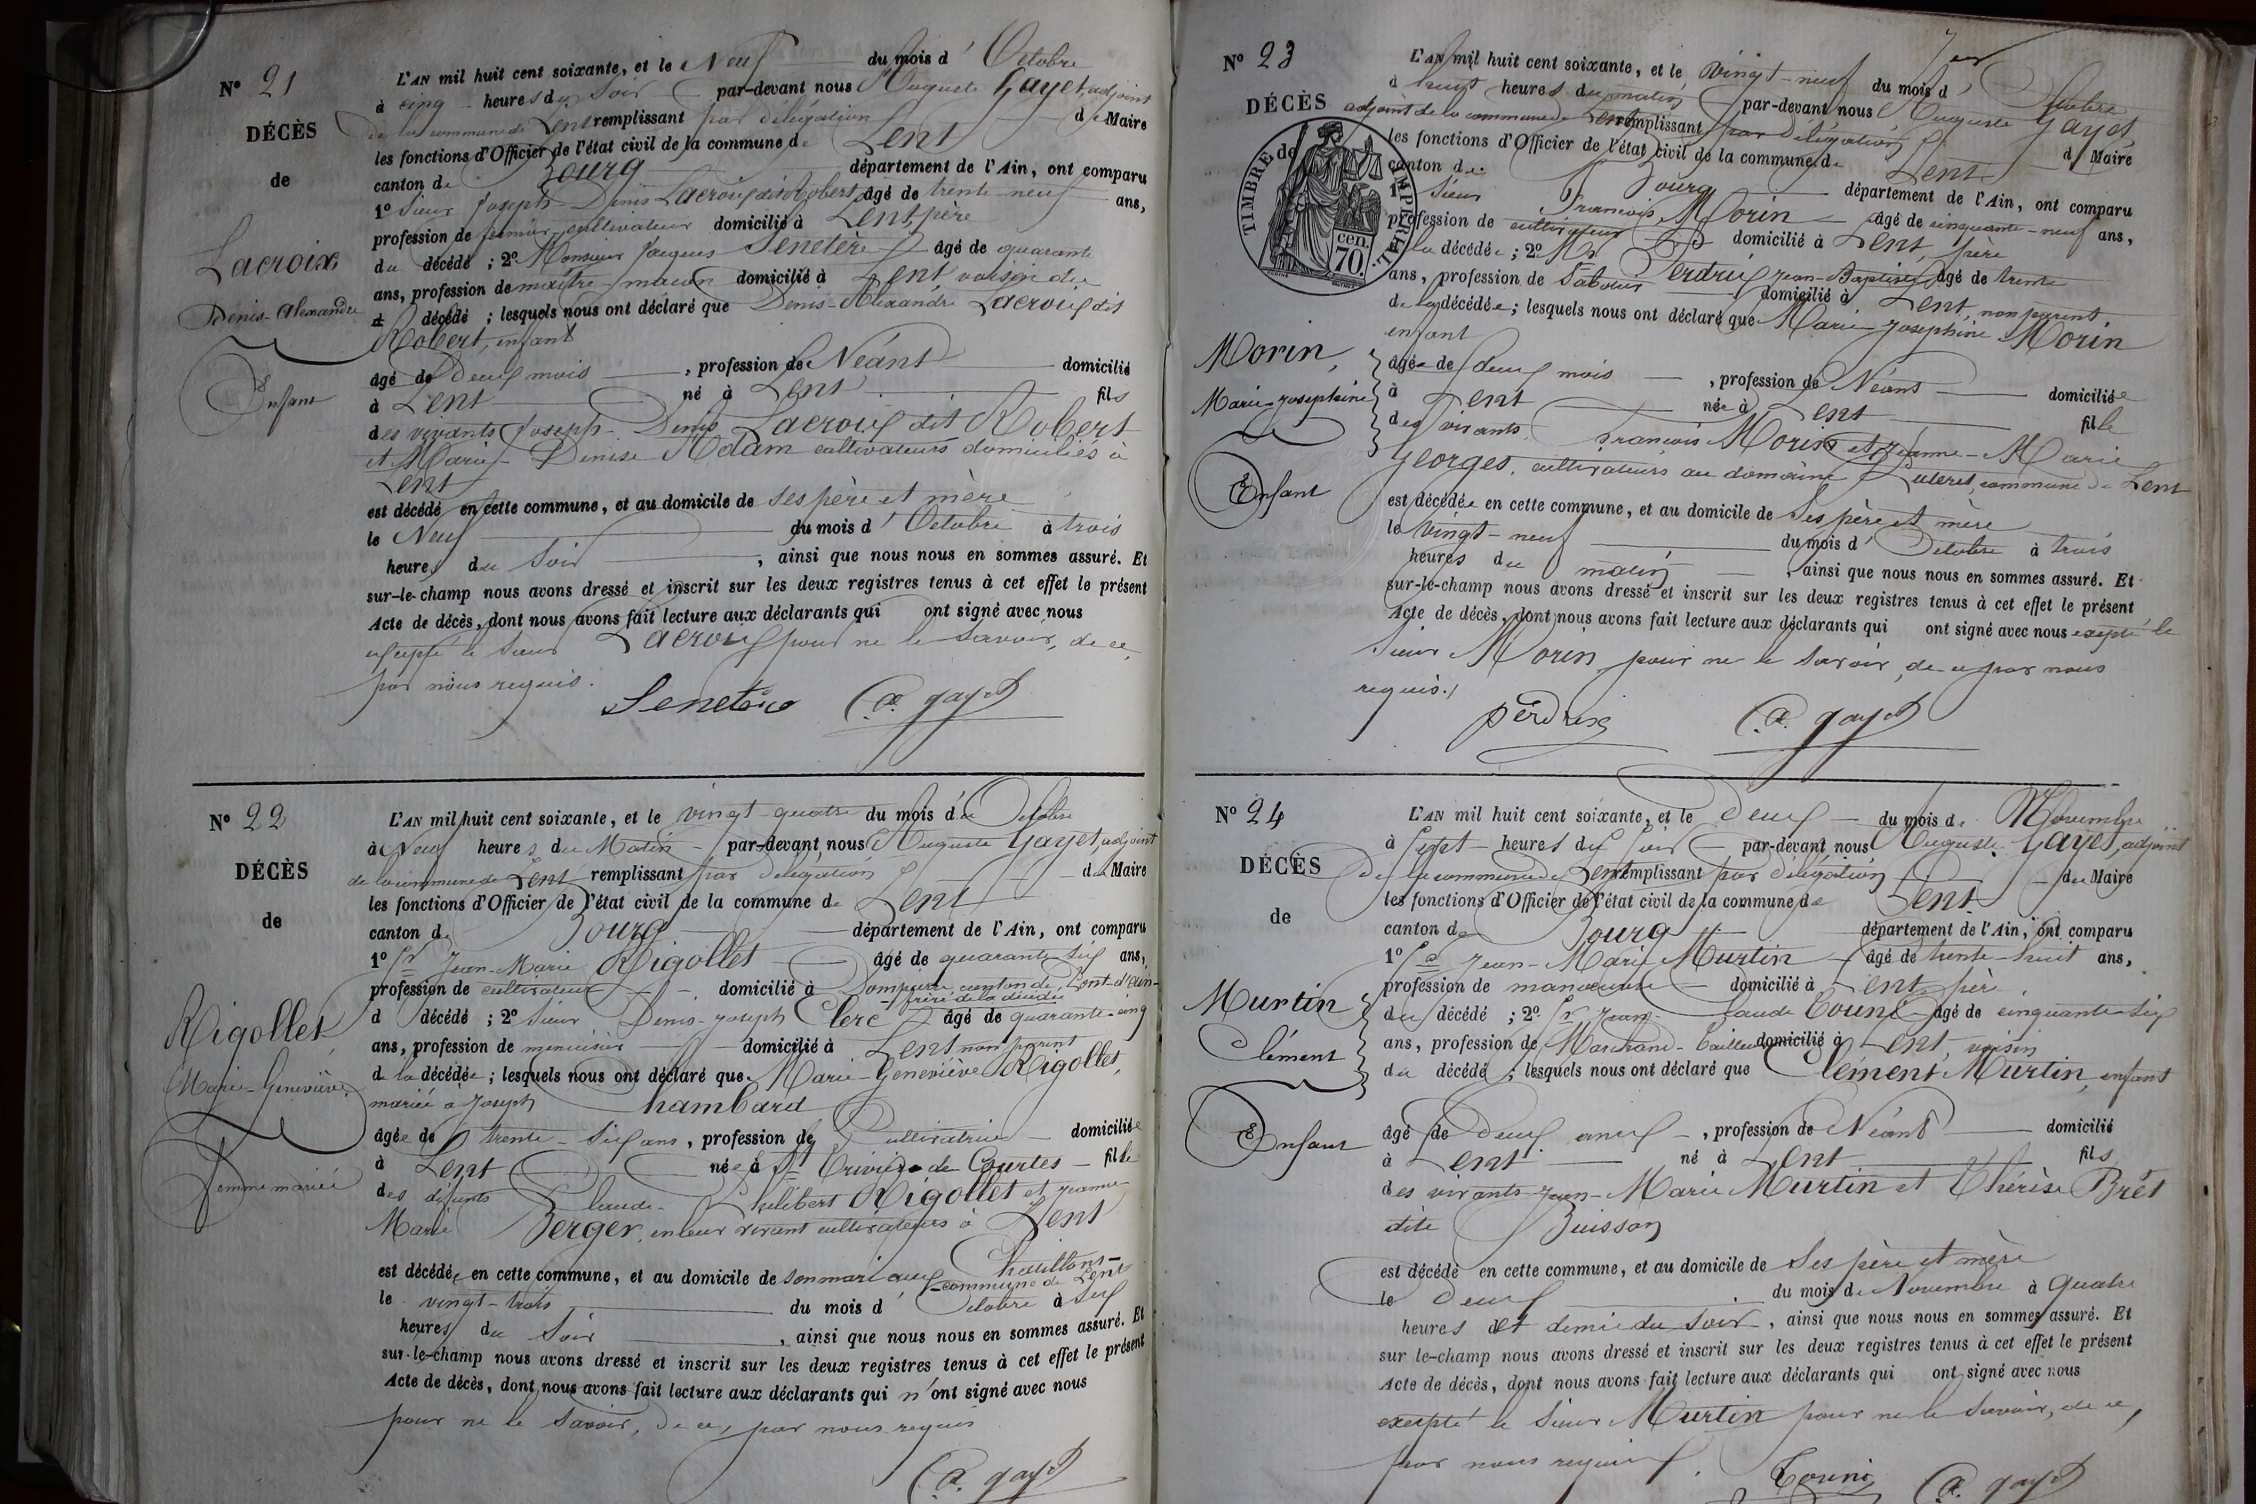 N° 21
DÉCÈS
de
Lacroix
Denis-Alexandre
Enfant
L'AN mil huit cent soixante, et le Neuf du mois d'Octobre
à cinq heures du Soir par-devant nous Auguste Gayet adjoint
de la commune de Lent remplissant par délégation du Maire
les fonctions d'Officier de l'état civil de la commune de Lent
canton de Bourg département de l'Ain, ont comparu
1° Sieur Joseph-Denis Lacroix dit Robert âgé de trente-neuf ans,
profession de fermier-cultivateur domicilié à Lent, père
du décédé ; 2° Monsieur Jacques Senetère âgé de quarante
ans, profession de maître maçon domicilié à Lent, voisin du
d décédé ; lesquels nous ont déclaré que Denis-Alexandre Lacroix dit
Robert, enfant
âgé de Deux mois , profession de Néant domicilié
à Lent né à Lent fils
des vivants Joseph-Denis Lacroix dit Robert
et Marie-Denise Adam cultivateurs domiciliés à
Lent
est décédé en cette commune, et au domicile de ses père et mère
le Neuf du mois d'Octobre à trois
heures du Soir , ainsi que nous nous en sommes assuré. Et
sur-le-champ nous avons dressé et inscrit sur les deux registres tenus à cet effet le présent
Acte de décès, dont nous avons fait lecture aux déclarants qui ont signé avec nous
excepté le sieur Lacroix pour ne le savoir, de ce,
par nous requis.
Senetère A. gayet
N° 22
DÉCÈS
de
Rigollet
Marie-Geneviève
Femme mariée
L'AN mil huit cent soixante, et le vingt-quatre du mois d'Octobre
à Neuf heures du Matin par-devant nous Auguste Gayet adjoint
de la commune de Lent remplissant par délégation du Maire
les fonctions d'Officier de l'état civil de la commune de Lent
canton de Bourg département de l'Ain, ont comparu
1° Sr Jean-Marie Rigollet âgé de quarante-six ans,
profession de cultivateur domicilié à Dompierre, canton de Pont-d'Ain-
- frère de la décédée
d décédé ; 2° Sieur Denis-Joseph Clerc âgé de quarante-cinq
ans, profession de menuisier domicilié à Lent non parent
de la décédée ; lesquels nous ont déclaré que Marie-Geneviève Rigollet,
mariée à Joseph Chambard
âgée de trente-six ans, profession de Cultivatrice domiciliée
à Lent née à St Trivier de Courtes fille
des défunts Claude-Philibert Rigollet et Jeanne
Marie Berger, en leur vivant cultivateurs à Lent
est décédée en cette commune, et au domicile de son mari aux Chaillons-
- commune de Lent
le vingt-trois du mois d'Octobre à six
heures du Soir , ainsi que nous nous en sommes assuré. Et
sur-le-champ nous avons dressé et inscrit sur les deux registres tenus à cet effet le présent
Acte de décès, dont nous avons fait lecture aux déclarants qui n'ont signé avec nous
pour ne le savoir, de ce, par nous requis
A. gayet
N° 23
DÉCÈS
de
TIMBRE IMPÉRIAL
70 cen.
Morin,
Marie-Josephine
Enfant
L'AN mil huit cent soixante, et le vingt-neuf du mois d'Octobre
à huit heures du matin par-devant nous Auguste Gayet,
adjoint de la commune de Lent remplissant par délégation du Maire
les fonctions d'Officier de l'état civil de la commune de Lent
canton de Bourg département de l'Ain, ont comparu
1° Sieur François Morin âgé de cinquante-neuf ans,
profession de cultivateur domicilié à Lent, père
de la décédée ; 2° Mr Perdrix Jean-Baptiste âgé de trente
ans, profession de Sabotier domicilié à Lent, non parent
de la décédée ; lesquels nous ont déclaré que Marie-Josephine Morin
enfant
âgée de deux mois , profession de Néant domiciliée
à Lent née à Lent fille
des vivants François Morin et Jeanne-Marie
Georges, cultivateurs au domaine commune de Lent
est décédée en cette commune, et au domicile de Ses père et mère
le vingt-neuf du mois d'Octobre à trois
heures du matin , ainsi que nous nous en sommes assuré. Et
sur-le-champ nous avons dressé et inscrit sur les deux registres tenus à cet effet le présent
Acte de décès, dont nous avons fait lecture aux déclarants qui ont signé avec nous excepté le
Sieur Morin pour ne le savoir, de ce par nous
requis./
perdrix A. gayet
N° 24
DÉCÈS
de
Murtin
Clément
Enfant
L'AN mil huit cent soixante, et le Deux du mois de Novembre
à Sept heures du Soir par-devant nous Auguste Gayet, adjoint
de la commune de Lent remplissant par délégation du Maire
les fonctions d'Officier de l'état civil de la commune de Lent
canton de Bourg département de l'Ain, ont comparu
1° Sr Jean-Marie Murtin âgé de trente-huit ans,
profession de manoeuvre domicilié à Lent, père
du décédé ; 2° Sr Jean-Claude âgé de cinquante-six
ans, profession de Marchand-tailleur domicilié à Lent, voisin
du décédé ; lesquels nous ont déclaré que Clément Murtin, enfant
âgé de Deux ans , profession de Néant domicilié
à Lent né à Lent fils
des vivants Jean-Marie Murtin et Thérèse Brêt
dite Buisson
est décédé en cette commune, et au domicile de Ses père et mère
le Deux du mois de Novembre à quatre
heures et demie du Soir , ainsi que nous nous en sommes assuré. Et
sur le-champ nous avons dressé et inscrit sur les deux registres tenus à cet effet le présent
Acte de décès, dont nous avons fait lecture aux déclarants qui ont signé avec nous
excepté le Sieur Murtin pour ne le Savoir, de ce,
par nous requis.
A. gayet